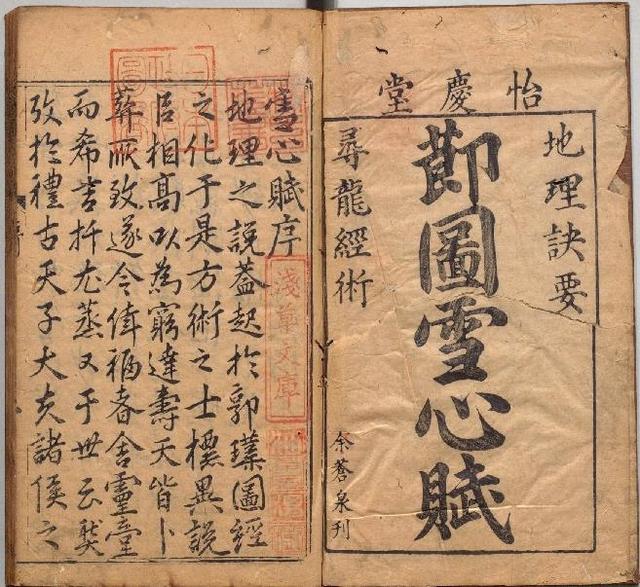 怡慶堂
地理訣要
莭圖雪心賦
尋龍經術
余蒼泉刊
雪心賦序
地理之說蓋起於郭璞圖經
之化于是方術之士標異說
相高以為窮達壽夭皆卜
葬所致遂令者舍靈堂
而希吉扦又于世云
攷於禮古天子大夫諸侯之
淺草文庫